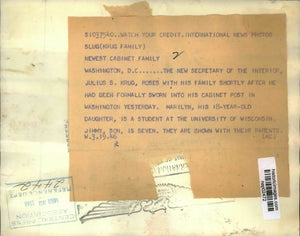 S1037540..WATCH YOUR CREDIT.INTERNATIONAL NEWS PHOTOS
SLUG(KRUG FAMILY)
NEWEST CABINET FAMILY
2
WASHINGTON, D.C......THE NEW SECRETARY OF THE INTERIOR,
JULIUS S. KRUG, ROSES WITH HIS FAMILY SHORTLY AFTER HE
HAD BEEN FORMALLY SWORN INTO HIS CABINET POST IN
WASHINGTON YESTERDAY. MARILYN, HIS 18-YEAR-OLD
DAUGHTER, IS A STUDENT AT THE UNIVERSITY OF WISCONSIN.
JIMMY, SON, IS SEVEN. THEY ARE SHOWN WITH THEIR PARENTS.
W.3.19.46
CENTRAL PRESS
ASSOCIATION